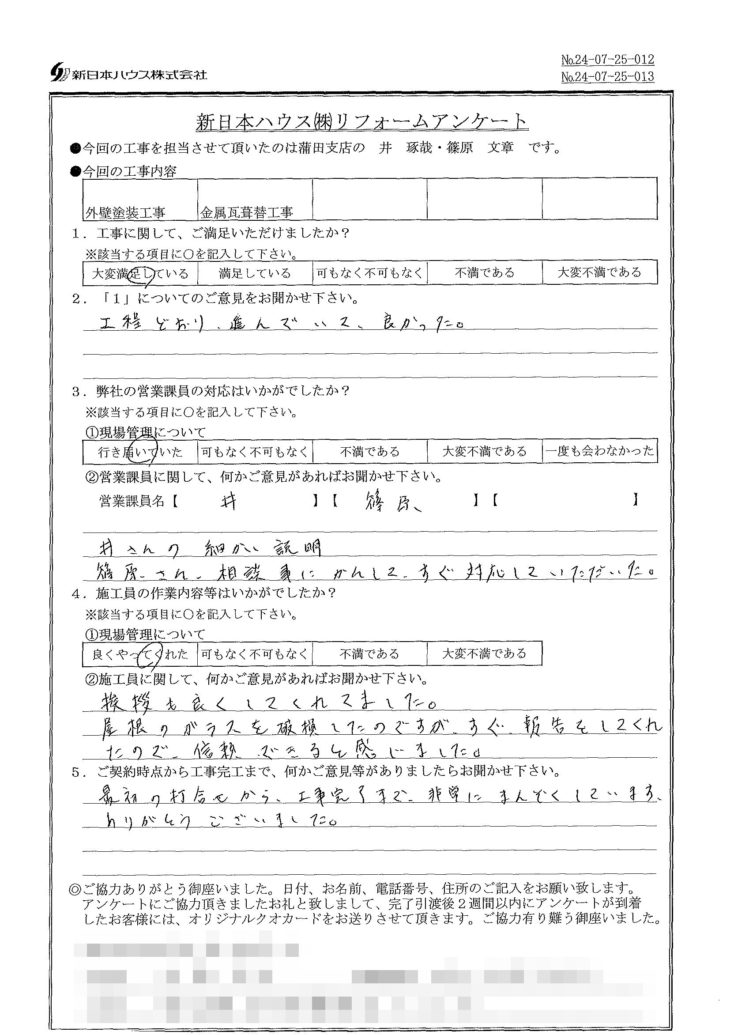 新日本ハウス株式会社
No.24-07-25-012
No.24-07-25-013
新日本ハウス㈱リフォームアンケート
●今回の工事を担当させて頂いたのは蒲田支店の 井 琢哉・篠原 文章 です。
●今回の工事内容
外壁塗装工事 金属瓦葺替工事
1．工事に関して、ご満足いただけましたか？
※該当する項目に○を記入して下さい。
大変満足している 満足している 可もなく不可もなく 不満である 大変不満である
2．「1」についてのご意見をお聞かせ下さい。
工程どおり、進んでいて、良かった。
3．弊社の営業課員の対応はいかがでしたか？
※該当する項目に○を記入して下さい。
①現場管理について
行き届いていた 可もなく不可もなく 不満である 大変不満である 一度も会わなかった
②営業課員に関して、何かご意見があればお聞かせ下さい。
営業課員名【 井 】【 篠原、 】【 】
井さんの 細かい 説明
篠原さん、相談事にかんして、すぐ対応していただいた。
4．施工員の作業内容等はいかがでしたか？
※該当する項目に○を記入して下さい。
①現場管理について
良くやってくれた 可もなく不可もなく 不満である 大変不満である
②施工員に関して、何かご意見があればお聞かせ下さい。
挨拶も良くしてくれてました。
屋根のガラスを破損したのですが、すぐ、報告をしてくれ
たので、信頼できると感じました。
5．ご契約時点から工事完工まで、何かご意見等がありましたらお聞かせ下さい。
最初の打合せから、工事完了まで、非常に まんぞくしています、
ありがとうございました。
◎ご協力ありがとう御座いました。日付、お名前、電話番号、住所のご記入をお願い致します。
アンケートにご協力頂きましたお礼と致しまして、完了引渡後2週間以内にアンケートが到着
したお客様には、オリジナルクオカードをお送りさせて頂きます。ご協力有り難う御座いました。